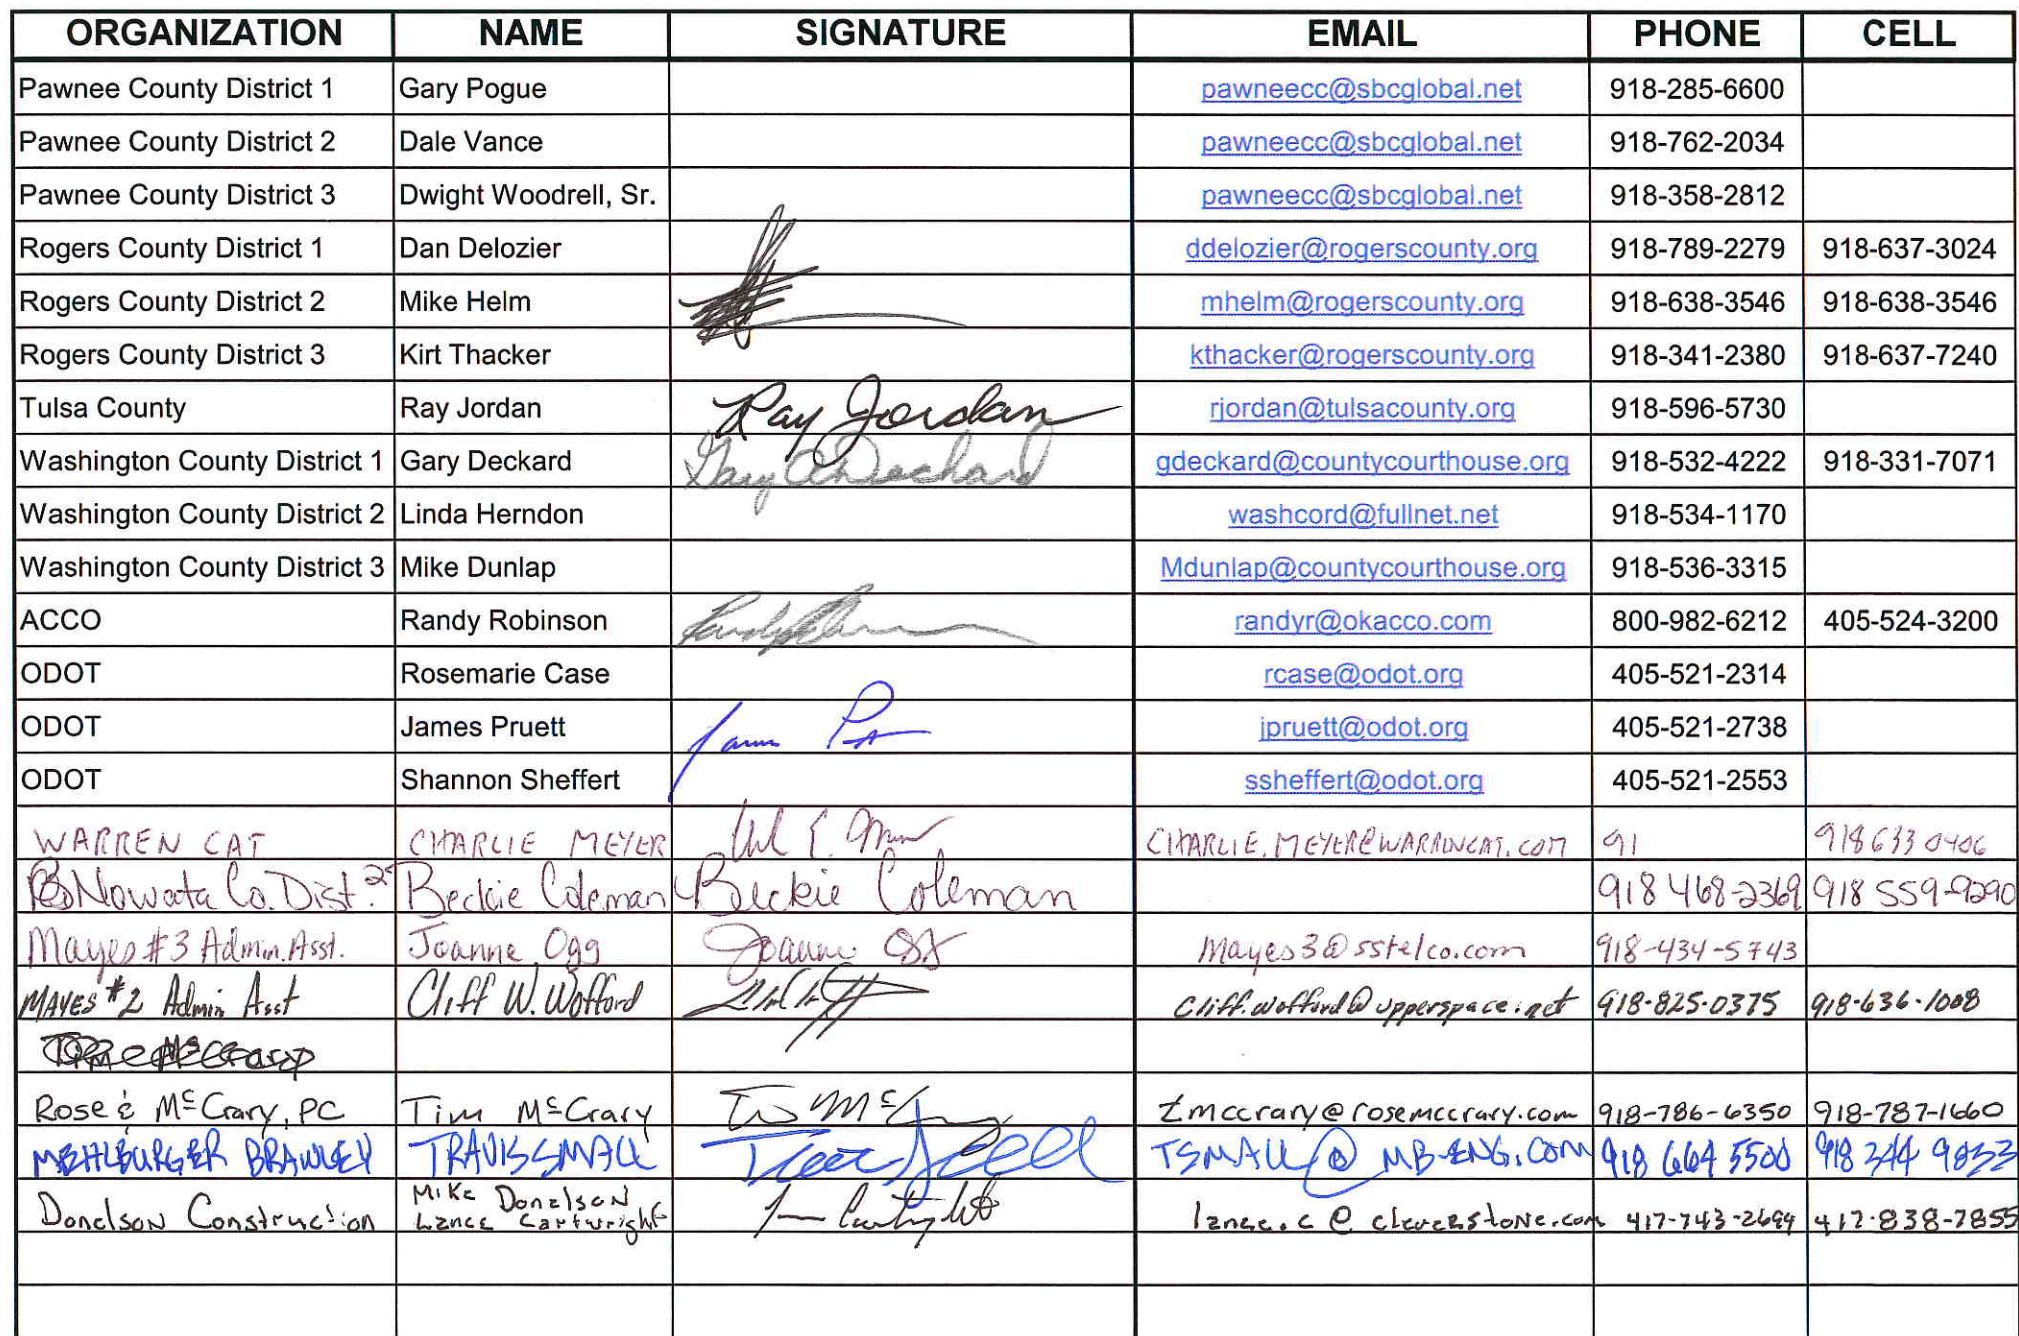 ORGANIZATION NAME SIGNATURE EMAIL PHONE CELL
Pawnee County District 1 Gary Pogue pawneecc@sbcglobal.net 918-285-6600
Pawnee County District 2 Dale Vance pawneecc@sbcglobal.net 918-762-2034
Pawnee County District 3 Dwight Woodrell, Sr. pawneecc@sbcglobal.net 918-358-2812
Rogers County District 1 Dan Delozier ddelozier@rogerscounty.org 918-789-2279 918-637-3024
Rogers County District 2 Mike Helm mhelm@rogerscounty.org 918-638-3546 918-638-3546
Rogers County District 3 Kirt Thacker kthacker@rogerscounty.org 918-341-2380 918-637-7240
Tulsa County Ray Jordan Ray Jordan rjordan@tulsacounty.org 918-596-5730
Washington County District 1 Gary Deckard Gary A Deckard gdeckard@countycourthouse.org 918-532-4222 918-331-7071
Washington County District 2 Linda Herndon washcord@fullnet.net 918-534-1170
Washington County District 3 Mike Dunlap Mdunlap@countycourthouse.org 918-536-3315
ACCO Randy Robinson randyr@okacco.com 800-982-6212 405-524-3200
ODOT Rosemarie Case rcase@odot.org 405-521-2314
ODOT James Pruett jpruett@odot.org 405-521-2738
ODOT Shannon Sheffert ssheffert@odot.org 405-521-2553
WARREN CAT CHARLIE MEYER CHARLIE.MEYER@WARRENCAT.COM 91 918 633 0406
Nowata Co. Dist. 2 Beckie Coleman Beckie Coleman 918 468-2369 918 559-9290
Mayes #3 Admin. Asst. Joanne Ogg Joanne Ogg Mayes3@sstelco.com 918-434-5743
MAYES #2 Admin Asst Cliff W. Wofford Cliff.wofford@upperspace.net 918-825-0375 918-636-1008
Rose & McCrary, PC Tim McCrary Tim McCrary tmccrary@rosemccrary.com 918-786-6350 918-787-1660
MEHLBURGER BRAWLEY TRAVIS SMALL TSMALL@MB-ENG.COM 918 664 5500 918 344 9833
Donelson Construction Mike Donelson
Lance Cartwright lance.c@cleverstone.com 417-743-2694 417-838-7855